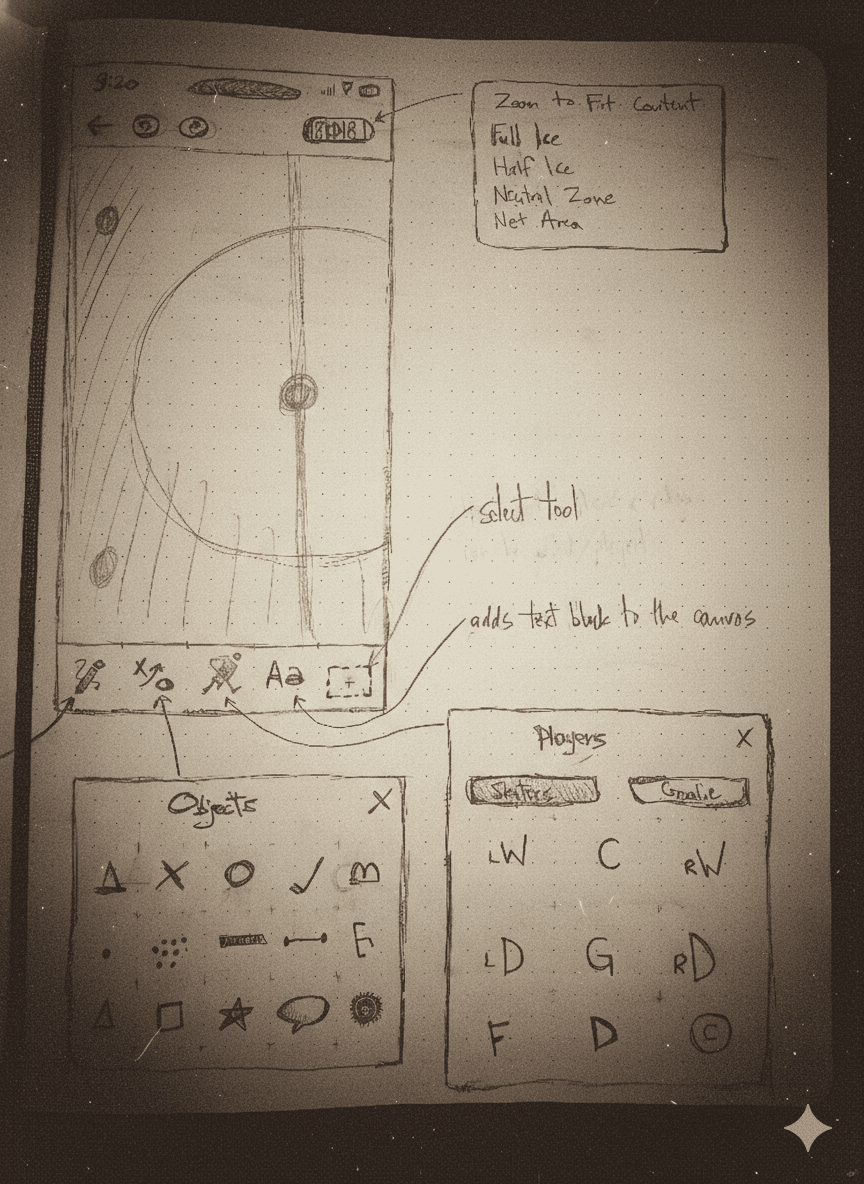 9:20
Zoom to Fit Content
Full Ice
Half Ice
Neutral Zone
Net Area
select tool
adds text block to the canvas
Aa
Objects X
Players X
Skaters Goalie
LW C RW
LD G RD
F D C